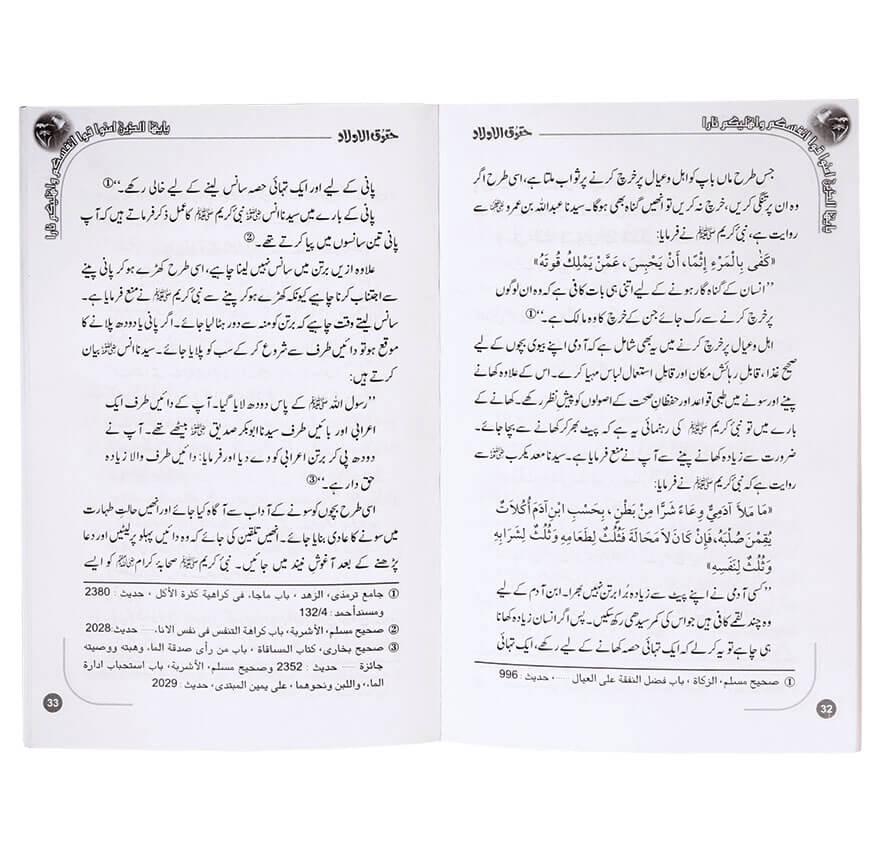 يايها الذين امنوا قوا انفسكم واهليكم نارا
حقوق الاولاد
جس طرح ماں باپ کو اہل و عیال پر خرچ کرنے پر ثواب ملتا ہے، اسی طرح اگر
وہ ان پر تنگی کریں، خرچ نہ کریں تو انھیں گناہ بھی ہوگا۔ سیدنا عبداللہ بن عمرو رضی اللہ عنہ سے
روایت ہے، نبی کریم ﷺ نے فرمایا:
«كَفٰى بِالْمَرْءِ إِثْمًا، أَنْ يَحْبِسَ، عَمَّنْ يَمْلِكُ قُوتَهُ»
’’انسان کے گناہ گار ہونے کے لیے اتنی ہی بات کافی ہے کہ وہ ان لوگوں
پر خرچ کرنے سے رک جائے جن کے خرچ کا وہ مالک ہے۔‘‘①
اہل و عیال پر خرچ کرنے میں یہ بھی شامل ہے کہ آدمی اپنے بیوی بچوں کے لیے
صحیح غذا، قابلِ رہائش مکان اور قابلِ استعمال لباس مہیا کرے۔ اس کے علاوہ کھانے
پینے اور سونے میں طبی قواعد اور حفظانِ صحت کے اصولوں کو پیش نظر رکھے۔ کھانے کے
بارے میں تو نبی کریم ﷺ کی رہنمائی یہ ہے کہ پیٹ بھر کر کھانے سے بچا جائے۔
ضرورت سے زیادہ کھانے پینے سے آپ نے منع فرمایا ہے۔ سیدنا معدیکرب رضی اللہ عنہ سے
روایت ہے کہ نبی کریم ﷺ نے فرمایا:
«مَا مَلَأَ آدَمِيٌّ وِعَاءً شَرًّا مِنْ بَطْنٍ، بِحَسْبِ ابْنِ آدَمَ أُكُلَاتٌ
يُقِمْنَ صُلْبَهُ، فَإِنْ كَانَ لَا مَحَالَةَ فَثُلُثٌ لِطَعَامِهِ وَثُلُثٌ لِشَرَابِهِ
وَثُلُثٌ لِنَفَسِهِ»
’’کسی آدمی نے اپنے پیٹ سے زیادہ بُرا برتن نہیں بھرا۔ ابن آدم کے لیے
وہ چند لقمے کافی ہیں جو اس کی کمر سیدھی رکھ سکیں۔ پس اگر انسان زیادہ کھانا
ہی چاہے تو یہ کر لے کہ ایک تہائی حصہ کھانے کے لیے رکھے، ایک تہائی
① صحيح مسلم، الزكاة، باب فضل النفقة على العيال ..... ، حديث : 996
32
يايها الذين امنوا قوا انفسكم واهليكم نارا
حقوق الاولاد
پانی کے لیے اور ایک تہائی حصہ سانس لینے کے لیے خالی رکھے۔‘‘①
پانی کے بارے میں سیدنا انس رضی اللہ عنہ نبی کریم ﷺ کا عمل ذکر فرماتے ہیں کہ آپ
پانی تین سانسوں میں پیا کرتے تھے۔②
علاوہ ازیں برتن میں سانس نہیں لینا چاہیے، اسی طرح کھڑے ہو کر پانی پینے
سے اجتناب کرنا چاہیے کیونکہ کھڑے ہو کر پینے سے نبی کریم ﷺ نے منع فرمایا ہے۔
سانس لیتے وقت چاہیے کہ برتن کو منہ سے دور ہٹا لیا جائے۔ اگر پانی یا دودھ پلانے کا
موقع ہو تو دائیں طرف سے شروع کر کے سب کو پلایا جائے۔ سیدنا انس رضی اللہ عنہ بیان
کرتے ہیں:
’’رسول اللہ ﷺ کے پاس دودھ لایا گیا۔ آپ کے دائیں طرف ایک
اعرابی اور بائیں طرف سیدنا ابوبکر صدیق رضی اللہ عنہ بیٹھے تھے۔ آپ نے
دودھ پی کر برتن اعرابی کو دے دیا اور فرمایا: دائیں طرف والا زیادہ
حق دار ہے۔‘‘③
اسی طرح بچوں کو سونے کے آداب سے آگاہ کیا جائے اور انھیں حالتِ طہارت
میں سونے کا عادی بنایا جائے۔ انھیں تلقین کی جائے کہ وہ دائیں پہلو پر لیٹیں اور دعا
پڑھنے کے بعد آغوشِ نیند میں جائیں۔ نبی کریم ﷺ صحابہ کرام رضی اللہ عنہم کو ایسے
① جامع ترمذى، الزهد ، باب ماجاء فى كراهية كثرة الأكل ، حديث : 2380
ومسند أحمد : 132/4
② صحيح مسلم، الأشربة، باب كراهة التنفس فى نفس الاناء..... حديث:2028
③ صحيح بخارى، كتاب المساقاة ، باب من رأى صدقة الماء وهبته ووصيته
جائزة ..... حديث : 2352 وصحيح مسلم، الأشربة، باب استحباب ادارة
الماء واللبن ونحوهما ، على يمين المبتدى ، حديث : 2029
33